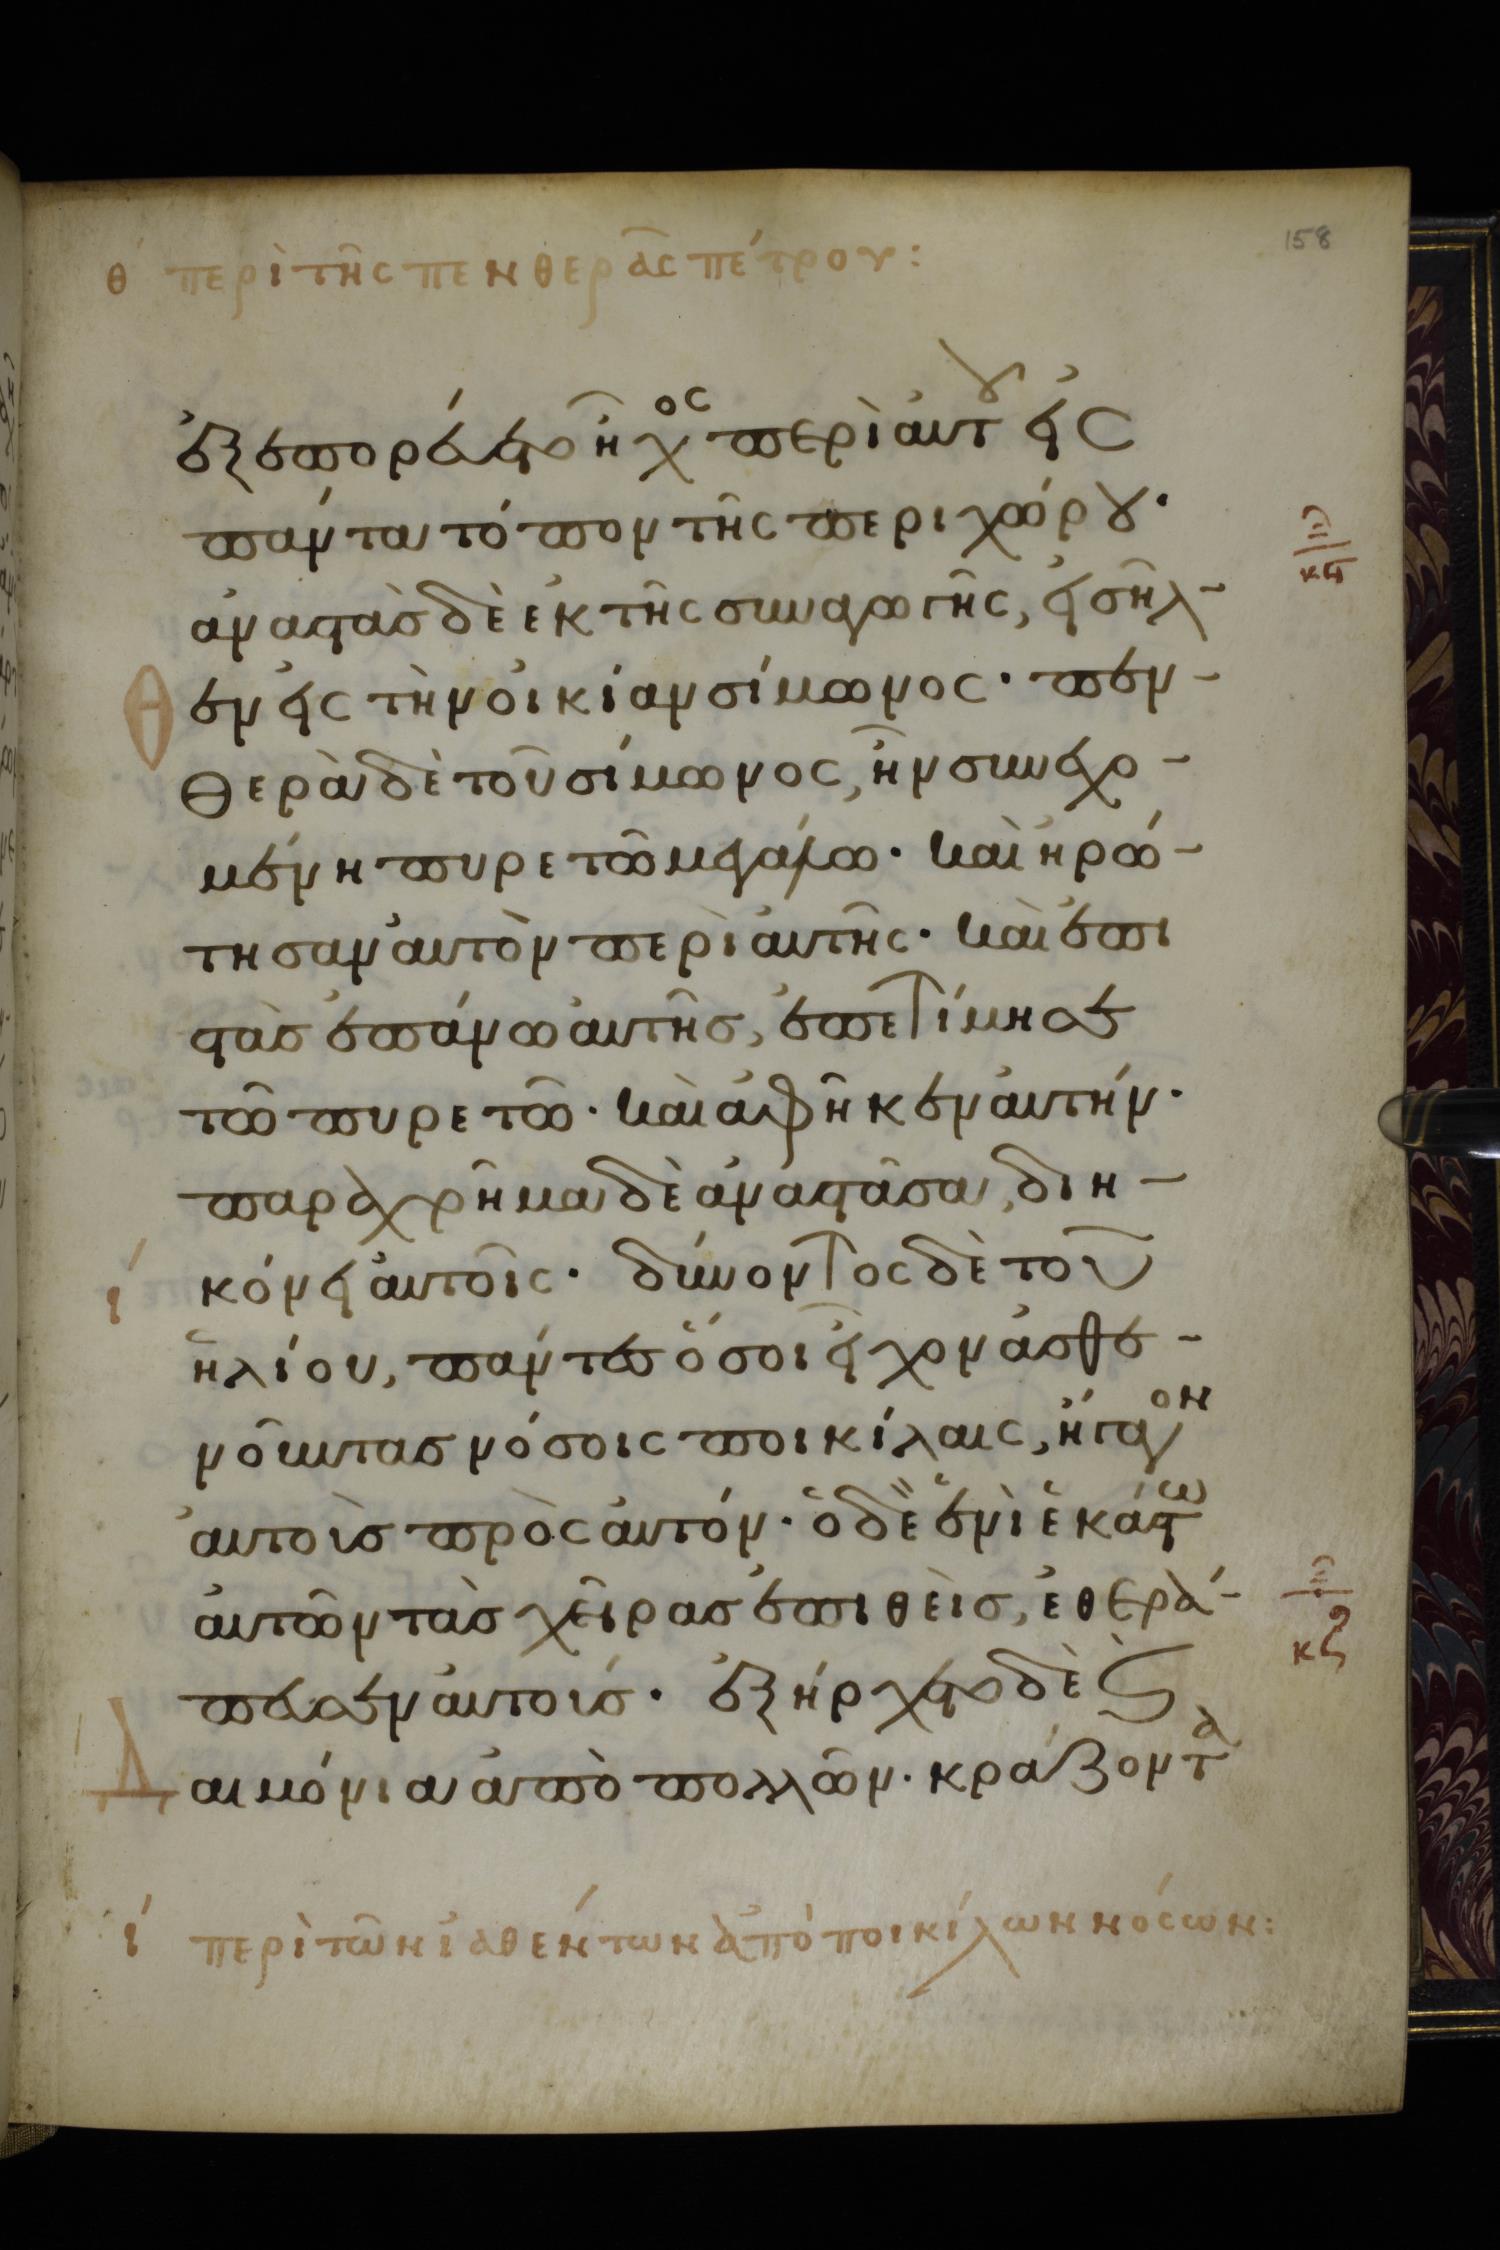 158
θ περὶ τῆς πενθερᾶς πέτρου:
ἐξεπορεύετο ἦχος περὶ αὐτοῦ εἰς
πάντα τόπον τῆς περιχώρου·
ἀναστὰς δὲ ἐκ τῆς συναγωγῆς, εἰσῆλ-
θεν εἰς τὴν οἰκίαν σίμωνος· πεν-
θερὰ δὲ τοῦ σίμωνος, ἦν συνεχο-
μένη πυρετῶ μεγάλω· καὶ ἠρώ-
τησαν αὐτὸν περὶ αὐτῆς· καὶ ἐπι
στὰς ἐπάνω αὐτῆς, ἐπετίμησε
τῶ πυρετῶ· καὶ ἀφῆκεν αὐτήν·
παραχρῆμα δὲ ἀναστᾶσα, διη-
ί κόνει αὐτοῖς· δύνοντος δὲ τοῦ
ἡλίου, πάντες ὅσοι εἶχον ἀσθε-
νοῦντας νόσοις ποικίλαις, ἤγαγον
αὐτοὺς πρὸς αὐτόν· ὁ δὲ ἑνὶ ἑκάστω
αὐτῶν τὰς χεῖρας ἐπιθεὶς, ἐθερά-
πευσεν αὐτούς· ἐξήρχετο δὲ καὶ
Δαιμόνια ἀπὸ πολλῶν· κράζοντα
ί περὶ τῶν ἰαθέντων ἀπὸ ποικίλων νόσων: